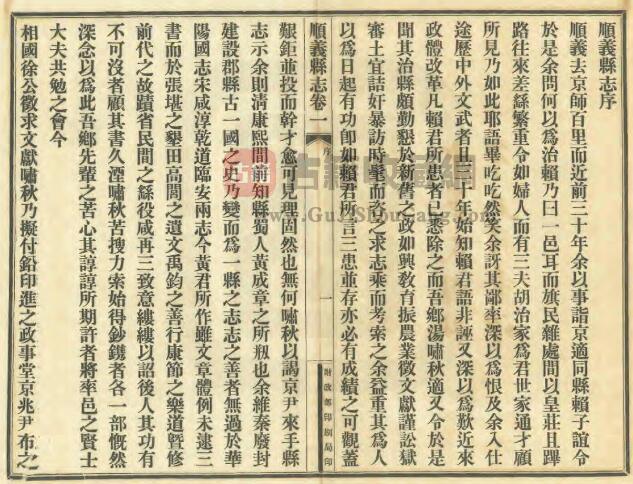 順義縣志序
順義去京師百里而近前三十年余以事詣京適同縣賴子誼令
於是余問何以爲治賴乃曰一邑耳而旗民雜處間以皇莊且蹕
路往來差繇繁重令如婦人而有三夫胡治家爲君世家通才顧
所見乃如此耶語畢吃吃然笑余訝其鄙率深以爲恨及余入仕
途歷中外文武者且三十年始知賴君語非誣又深以爲歉近來
政體改革凡賴君所患者已悉除之而吾鄉湯嘯秋適又令於是
聞其治縣頗勤懇於新舊之政如興教育振農業徵文獻謹訟獄
審土宜詰奸暴訪時髦而咨之求志乘而考索之余益重其爲人
以爲日起有功卽如賴君所言三患並存亦必有成績之可觀蓋
順義縣志卷一
序
一
財政部印刷局印
艱鉅並投而幹才愈可見理固然也無何嘯秋以謁京尹來手縣
志示余則淸康熙間前知縣蜀人黃成章之所刱也余維秦廢封
建設郡縣古一國之史乃變而爲一縣之志志之善者無過於華
陽國志宋咸淳乾道臨安兩志今黃君所作雖文章體例未逮三
書而於張堪之墾田高閭之遺文禹鈞之善行康節之樂道曁修
前代之故蹟省民間之繇役咸再三致意縷縷以詔後人其功有
不可沒者顧其書久湮嘯秋苦搜力索始得鈔鐫者各一部慨然
深念以爲此吾鄉先輩之苦心其諄諄所期許者將率邑之賢士
大夫共勉之會今
相國徐公徵求文獻嘯秋乃擬付鉛印進之政事堂京兆尹布之